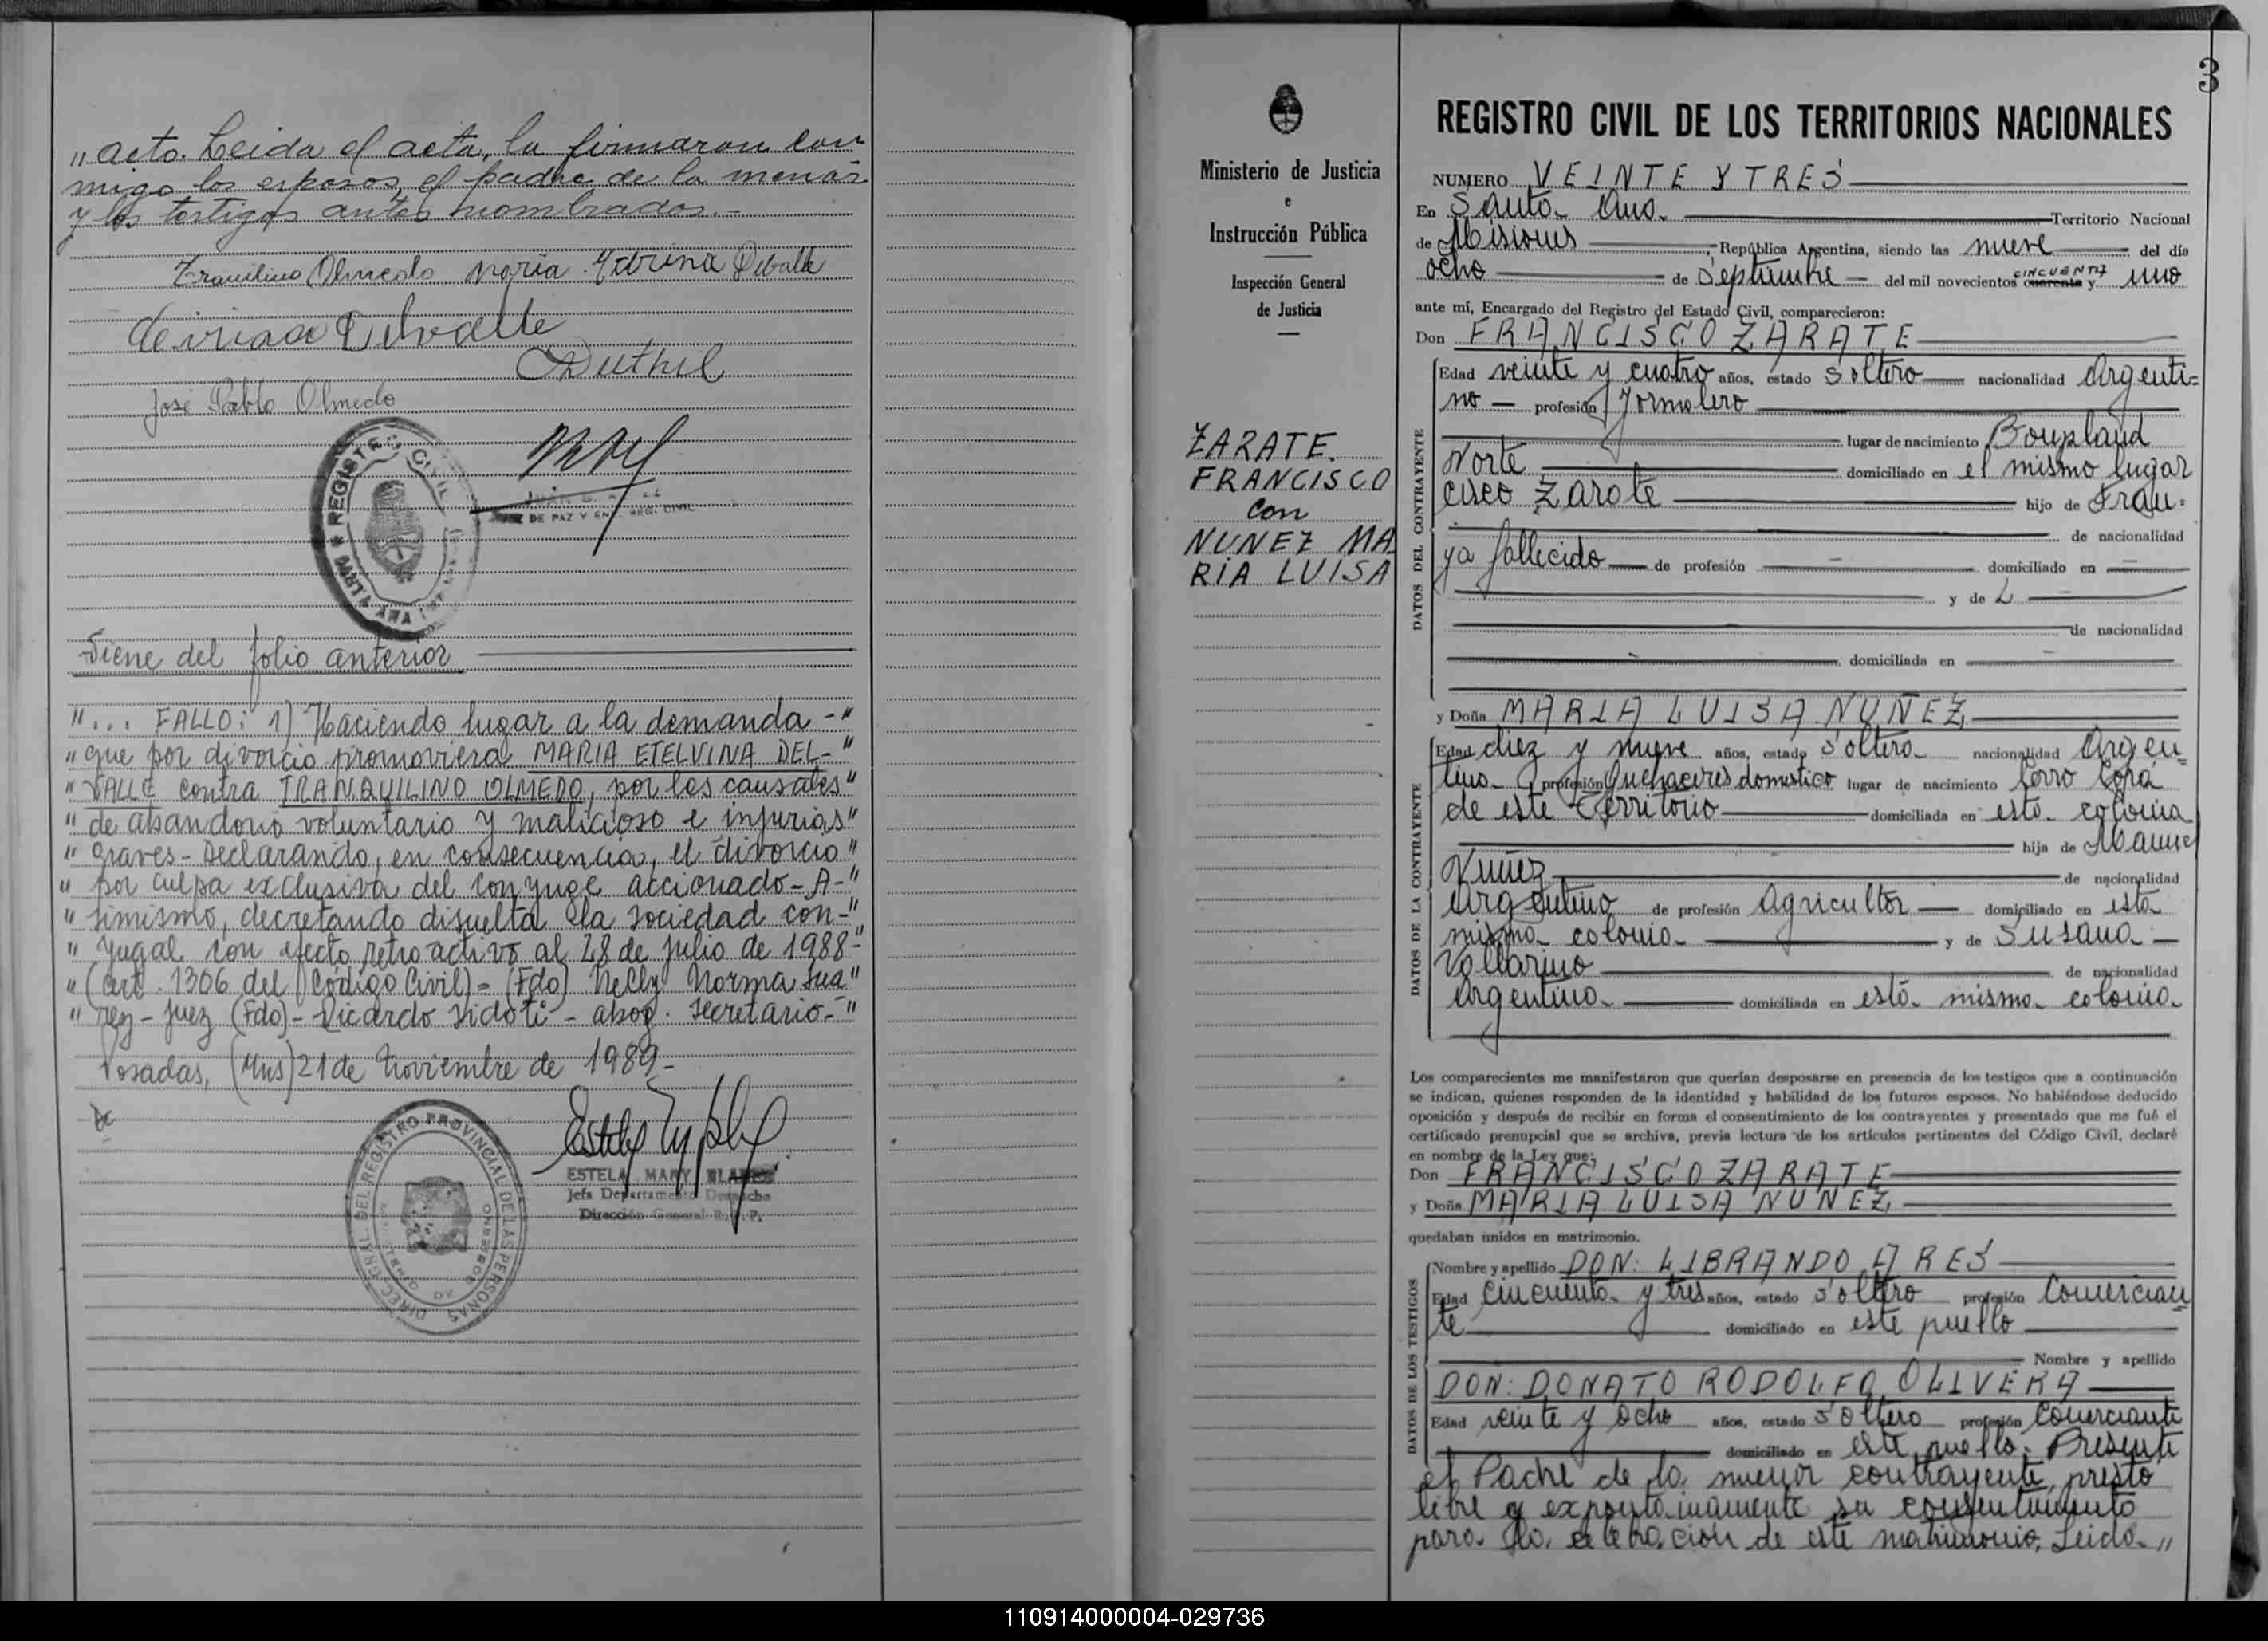 " acto. Leida el acta, la firmaron con
migo los esposos, el padre de la menor
y los testigos antes nombrados.-
Tranquilino Olmedo Maria Etelvina Delvalle
Ciriaco Delvalle
Duthil
José Pablo Olmedo
REGISTRO CIVIL
SANTA ANA
DE PAZ Y ENC. REG. CIVIL
Viene del folio anterior
"... FALLO: 1) Haciendo lugar a la demanda -"
" que por divorcio promoviera MARIA ETELVINA DEL-"
" VALLE contra TRANQUILINO OLMEDO, por las causales"
" de abandono voluntario y malicioso e injurias"
" graves - Declarando, en consecuencia, el divorcio"
" por culpa exclusiva del conyuge accionado - A-"
" simismo, decretando disuelta la sociedad con-"
" yugal con efecto retroactivo al 28 de julio de 1988-"
" (art. 1306 del Código Civil) = (Fdo) Nelly Norma Sua"
" rez - Juez (Fdo) - Ricardo Sidoti - abog. Secretario.-"
Posadas, (Mns) 21 de Noviembre de 1989.-
DIREC. GRAL. DEL REGISTRO PROVINCIAL DE LAS PERSONAS
ESTELA MARY
Jefa Departamento Despacho
Dirección General R. P. P.
3
Ministerio de Justicia
e
Instrucción Pública
Inspección General
de Justicia
ZARATE.
FRANCISCO
con
NUNEZ MA
RIA LUISA
REGISTRO CIVIL DE LOS TERRITORIOS NACIONALES
NUMERO VEINTE Y TRES
En Santa Ana. Territorio Nacional
de Misiones, República Argentina, siendo las nueve del día
ocho de Septiembre del mil novecientos cuarenta CINCUENTA y uno
ante mí, Encargado del Registro del Estado Civil, comparecieron:
Don FRANCISCO ZARATE
DATOS DEL CONTRAYENTE
Edad veinte y cuatro años, estado soltero nacionalidad Argenti=
no - profesión Jornalero
lugar de nacimiento Bonpland
Norte domiciliado en el mismo lugar
cisco Zarate hijo de Fran=
de nacionalidad
ya fallecido de profesión domiciliado en
y de
de nacionalidad
domiciliada en
y Doña MARIA LUISA NUÑEZ
DATOS DE LA CONTRAYENTE
Edad diez y nueve años, estado soltera nacionalidad Argen=
tina profesión Quehaceres domestico lugar de nacimiento Cerro Corá
de este Territorio domiciliada en esta colonia
hija de Manuel
Nuñez de nacionalidad
Argentino de profesión Agricultor domiciliado en esta
misma colonia y de Susana
Vallarino de nacionalidad
Argentina domiciliada en esta misma colonia
Los comparecientes me manifestaron que querían desposarse en presencia de los testigos que a continuación
se indican, quienes responden de la identidad y habilidad de los futuros esposos. No habiéndose deducido
oposición y después de recibir en forma el consentimiento de los contrayentes y presentado que me fué el
certificado prenupcial que se archiva, previa lectura de los artículos pertinentes del Código Civil, declaré
en nombre de la Ley que:
Don FRANCISCO ZARATE
y Doña MARIA LUISA NUNEZ
quedaban unidos en matrimonio.
DATOS DE LOS TESTIGOS
Nombre y apellido DON: LIBRANDO ARES
Edad cincuenta y tres años, estado soltero profesión Comercian
te domiciliado en este pueblo
Nombre y apellido
DON: DONATO RODOLFO OLIVERA
Edad veinte y ocho años, estado soltero profesión Comerciante
domiciliado en este pueblo. Presente
el Padre de la menor contrayente, presto
libre y expontaniamente su consentimiento
para la celebracion de este matrimonio, Leida "
110914000004-029736